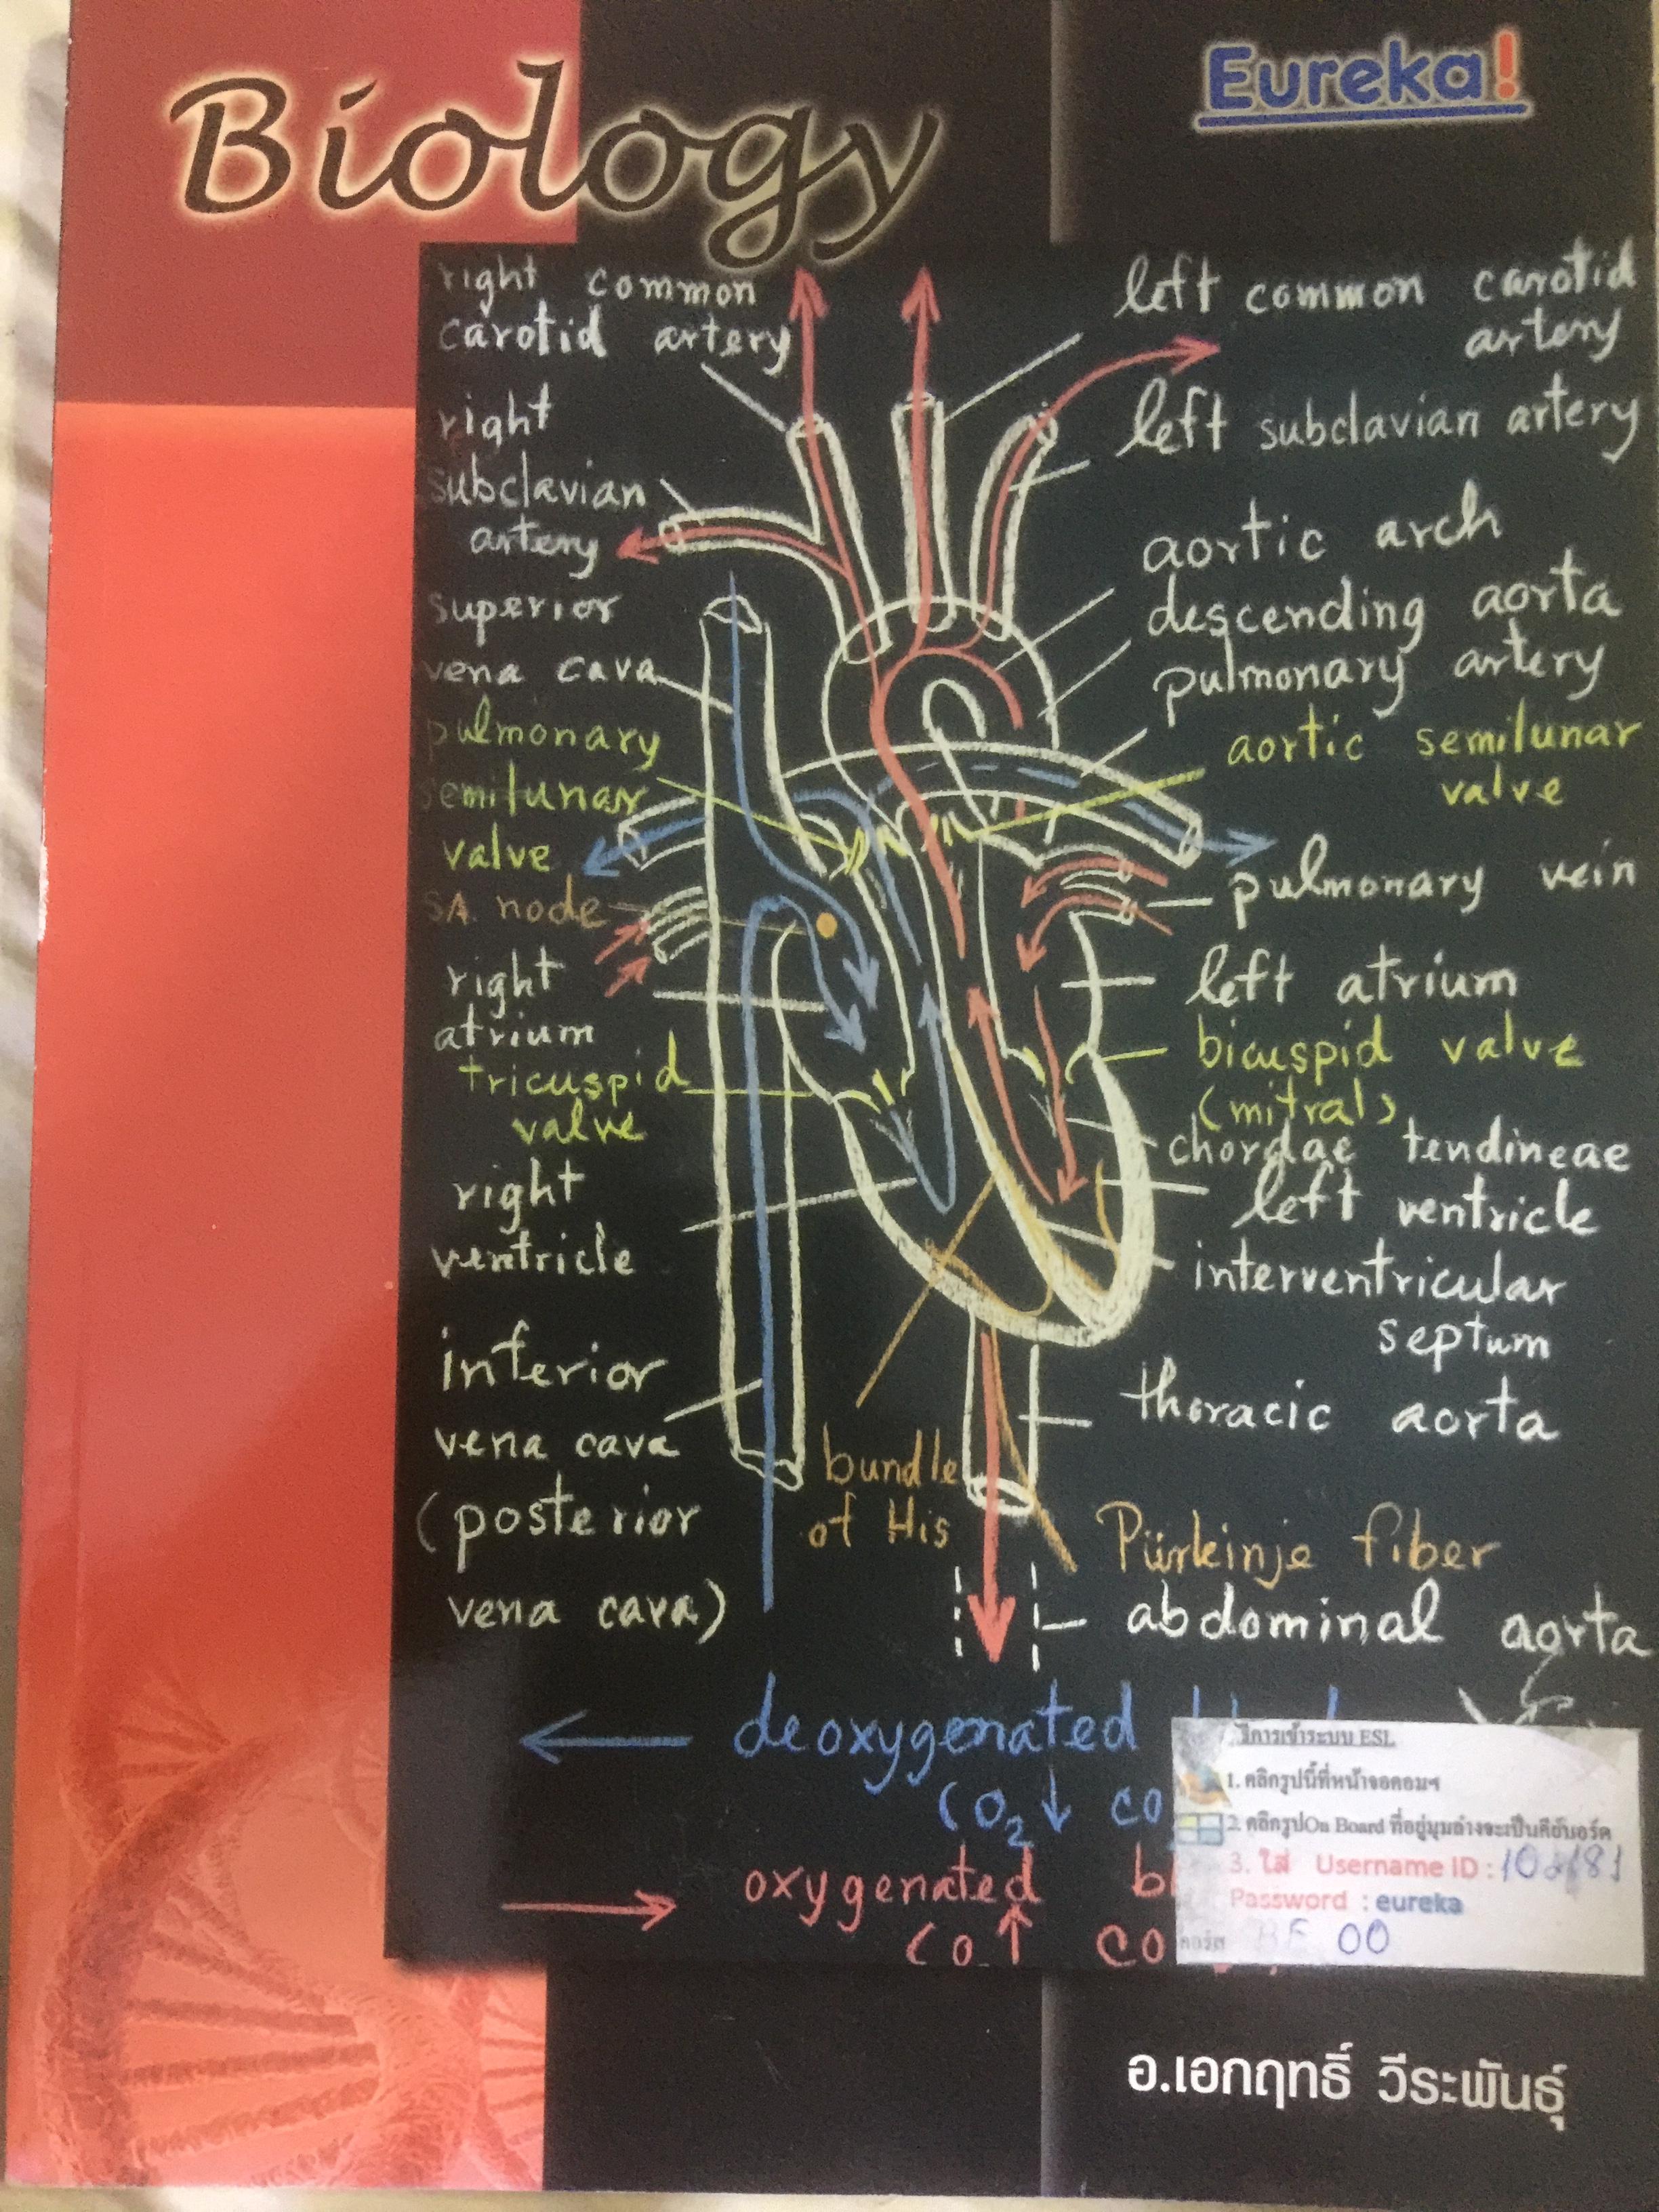 Biology
Eureka!
right common
carotid artery
right
subclavian
artery
superior
vena cava
pulmonary
semilunar
valve
SA node
right
atrium
tricuspid
valve
right
ventricle
inferior
vena cava
(posterior
vena cava)
left common carotid
artery
left subclavian artery
aortic arch
descending aorta
pulmonary artery
aortic semilunar
valve
pulmonary vein
left atrium
bicuspid valve
(mitral)
chordae tendineae
left ventricle
interventricular
septum
thoracic aorta
bundle
of His
Pürkinje fiber
abdominal aorta
deoxygenated
(O2↓ CO
oxygenated bl
(O ↑ CO
วิธีการเข้าระบบ ESL
1. คลิกรูปนี้ที่หน้าจอคอมฯ
2. คลิกรูปOn Board ที่อยู่มุมล่างจะเป็นคีย์บอร์ด
3. ใส่ Username ID :
Password : eureka
คอร์ส 00
อ.เอกฤทธิ์ วีระพันธุ์